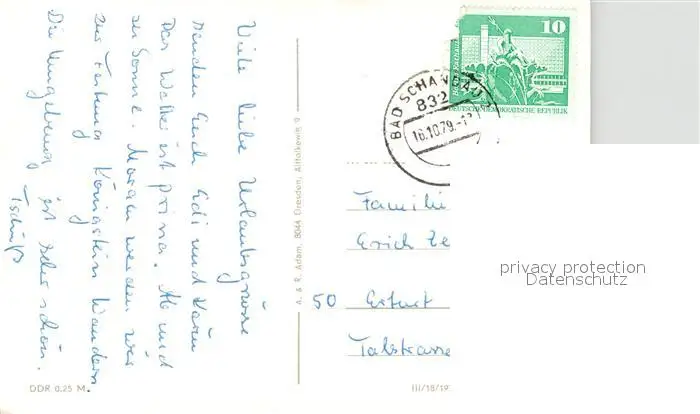 Viele liebe Urlaubsgrüsse
senden Euch Edi und Karin
Das Wetter ist prima. Ab und
zu Sonne. Morgen werden wir
zur Festung Königstein wandern
Die Umgebung ist sehr schön.
Tschüß
A. & R. Adam, 8044 Dresden, Altlalkewitz 9
10
DEUTSCHE DEMOKRATISCHE REPUBLIK
BAD SCHANDAU
832
16.10.79
Familie
Erich Ze
50 Erfurt
Talstrasse
privacy protection
Datenschutz
DDR 0.25 M.
III/18/19